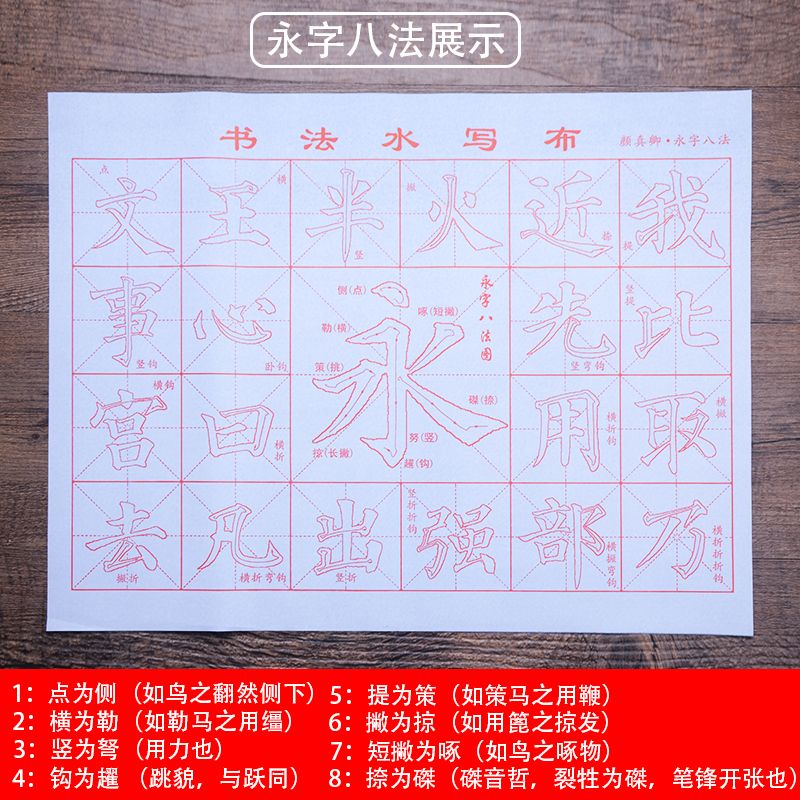 永字八法展示
书法水写布
颜真卿·永字八法
点 文
横 王
半 竖
撇 火
近 捺
提 我
事 竖钩
心 卧钩
永字八法图
侧(点)
啄(短撇)
勒(横)
策(挑)
永
磔(捺)
努(竖)
掠(长撇)
趯(钩)
先 竖弯钩
竖提 比
横钩 宫
曰 横折
用 横折钩
取 横撇
去 撇折
凡 横折弯钩
出 竖折
竖折折钩 强
部 横撇弯钩
乃 横折折折钩
1：点为侧（如鸟之翻然侧下）
2：横为勒（如勒马之用缰）
3：竖为弩（用力也）
4：钩为趯（跳貌，与跃同）
5：提为策（如策马之用鞭）
6：撇为掠（如用篦之掠发）
7：短撇为啄（如鸟之啄物）
8：捺为磔（磔音哲，裂牲为磔，笔锋开张也）